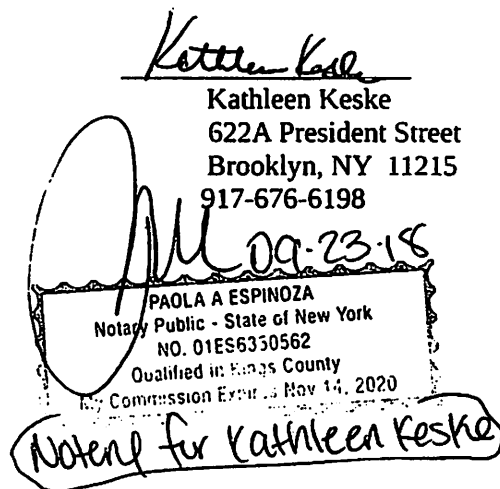 Kathleen Keske
Kathleen Keske
622A President Street
Brooklyn, NY 11215
917-676-6198
09-23-18
PAOLA A ESPINOZA
Notary Public - State of New York
NO. 01ES6350562
Qualified in Kings County
My Commission Expires Nov 14, 2020
for Kathleen Keske